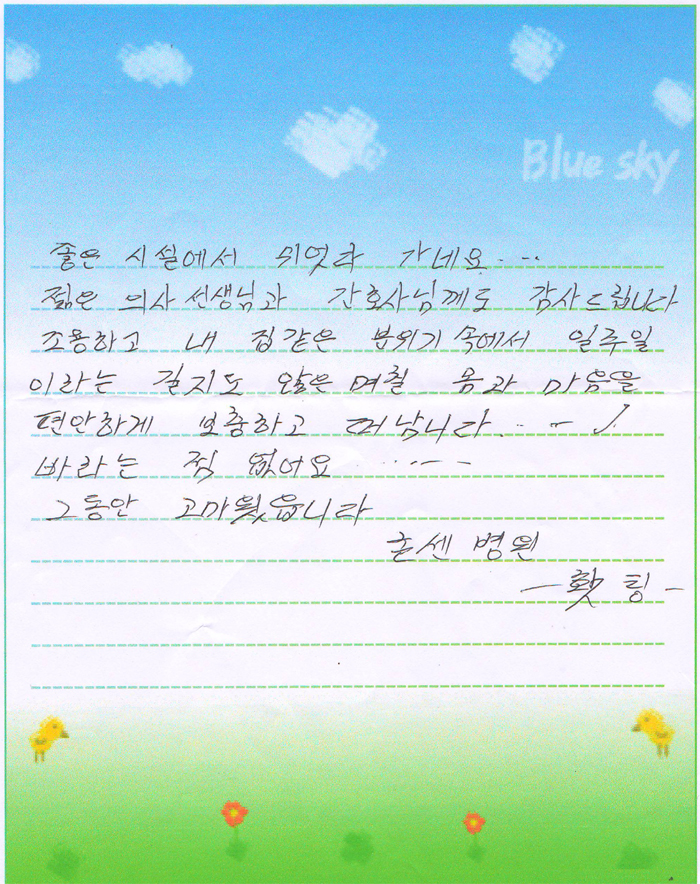 Blue sky
좋은 시설에서 쉬었다 가네요....
젊은 의사선생님과 간호사님께도 감사드립니다
조용하고 내 집같은 분위기 속에서 일주일
이라는 길지도 않은 며칠 몸과 마음을
편안하게 보충하고 떠납니다....
바라는 점 없어요 ....
그동안 고마웠읍니다
굳센병원
-홧팅-